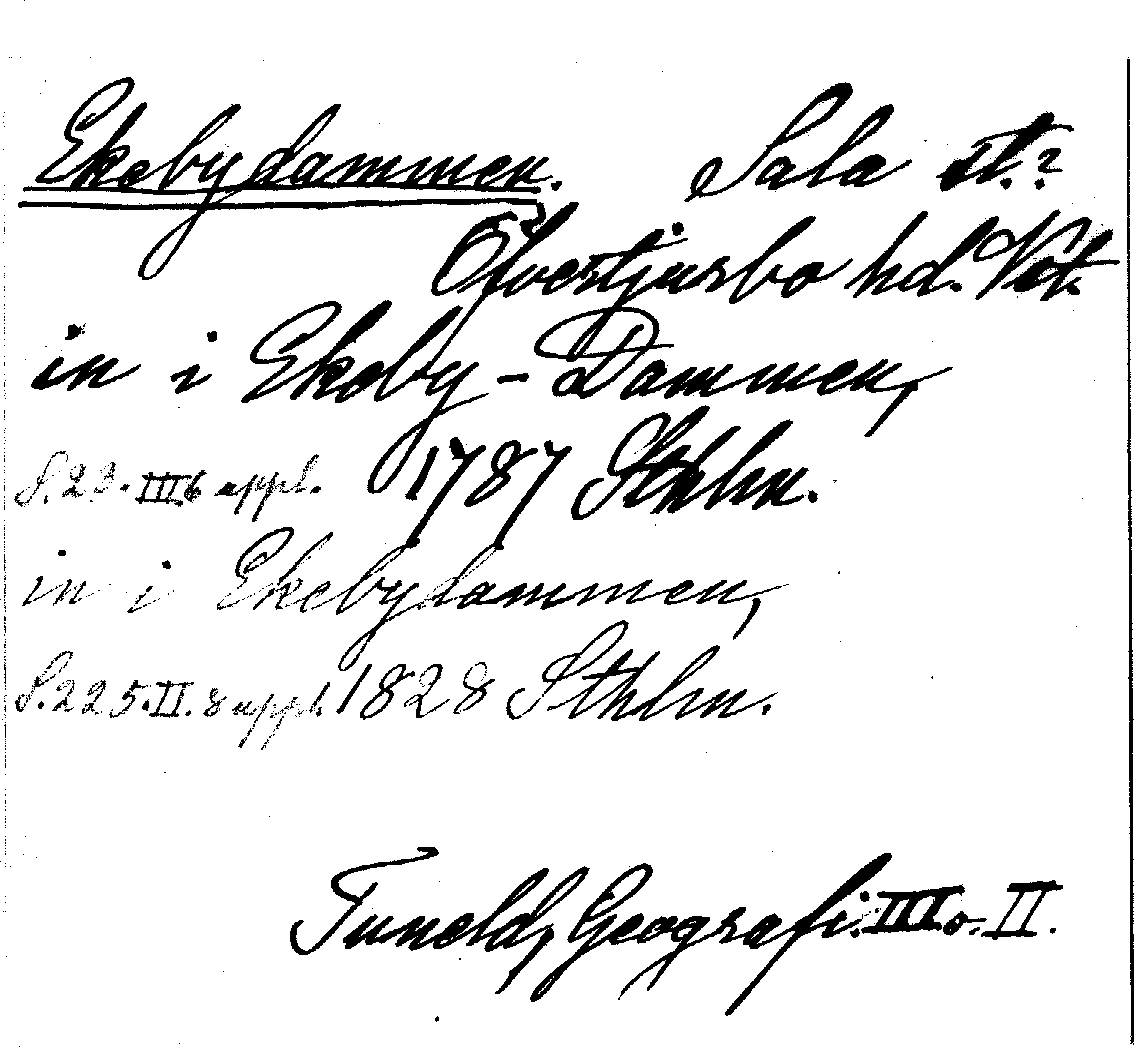 Ekebydammen. Sala st.?
Öfvertjurbo hd. Vstm.
in i Ekeby-Dammen,
S. 23. III 6 uppl. 1787 Sthlm.
in i Ekebydammen,
S. 225. II. 8 uppl. 1828 Sthlm.
Tuneld, Geografi. III o. II.